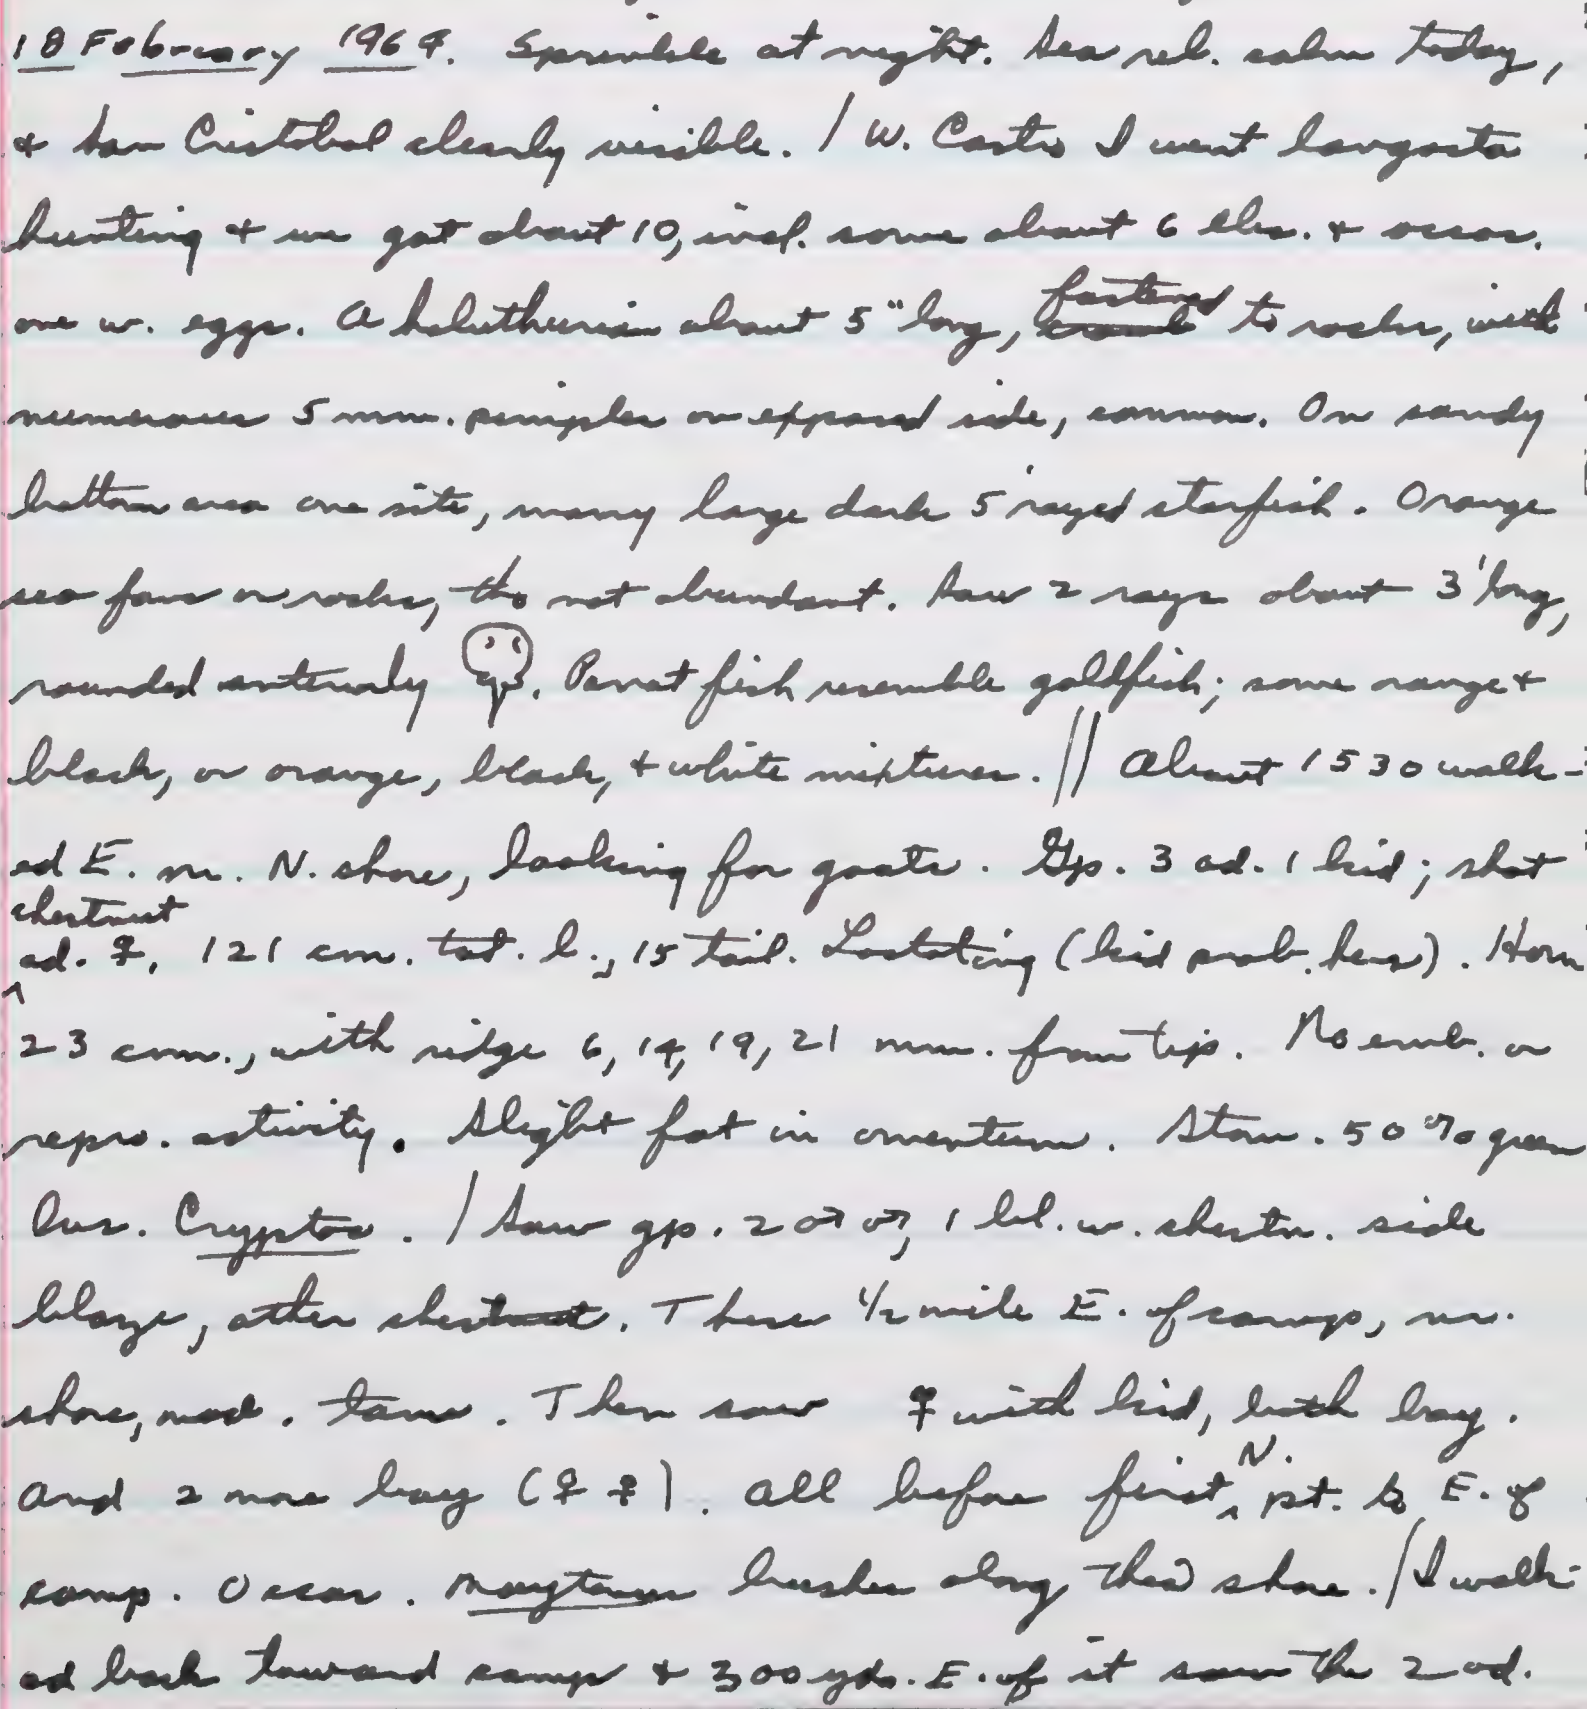 18 February 1969. Sprinkle at night. Sea rel. calm today,
& San Cristobal clearly visible. / W. Castro I went langosta
hunting & we got about 10, incl. some about 6 lbs. & occas.
one w. eggs. A holuthurian about 5" long, fastened to rocks, with
numerous 5 mm. pimples on exposed side, common. On sandy
bottom area one site, many large dark 5 rayed starfish. Orange
sea fans on rocks, tho not abundant. Saw 2 rays about 3' long,
rounded anteriorly . Parrot fish resemble goldfish; some orange &
black, or orange, black, & white mixtures. // About 1530 walk-
ed E. nr. N. shore, looking for goats. Gp. 3 ad. 1 kid; shot
chestnut
ad. ♀, 121 cm. tot. l., 15 tail. Lactating (kid prob. hers). Horn
23 cm., with ridge 6, 14, 19, 21 mm. from tip. No emb. or
repro. activity. Slight fat in omentum. Stom. 50% green
lvs. Cryptoc. / Saw gp. 2 ♂♂, 1 bl. w. chestn. side
blaze, other chestnut. These 1/2 mile E. of camp, nr.
shore, mod. tame. Then saw ♀ with kid, both bay.
And 2 more bay (♀♀). All before first N. pt. to E. of
camp. Occas. Maytenus bushes along this shore. / I walk-
ed back toward camp & 300 yds. E. of it saw the 2 ad.